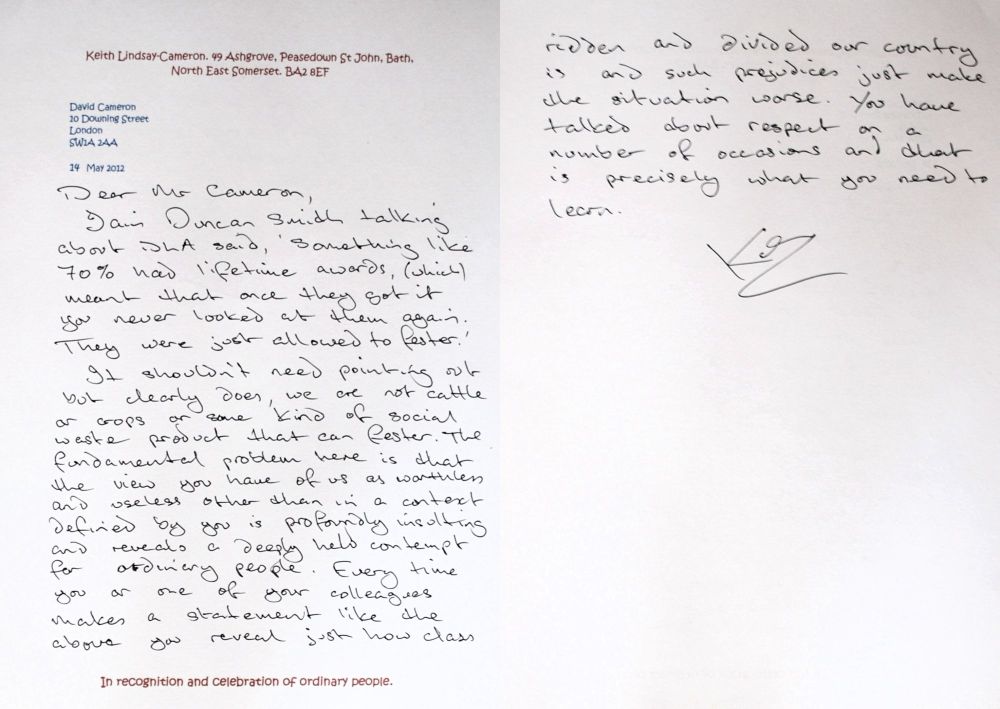 Keith Lindsay-Cameron. 49 Ashgrove, Peasedown St John, Bath,
North East Somerset. BA2 8EF
David Cameron
10 Downing Street
London
SW1A 2AA
14 May 2012
Dear Mr Cameron,
Iain Duncan Smith talking
about DLA said, 'Something like
70% had lifetime awards, (which)
meant that once they got it
you never looked at them again.
They were just allowed to fester.'
It shouldn't need pointing out
but clearly does, we are not cattle
or crops or some kind of social
waste product that can fester. The
fundamental problem here is that
the view you have of us as worthless
and useless other than in a context
defined by you is profoundly insulting
and reveals a deeply held contempt
for ordinary people. Every time
you or one of your colleagues
makes a statement like the
above you reveal just how class
In recognition and celebration of ordinary people.
ridden and divided our country
is and such prejudices just make
the situation worse. You have
talked about respect on a
number of occasions and that
is precisely what you need to
learn.